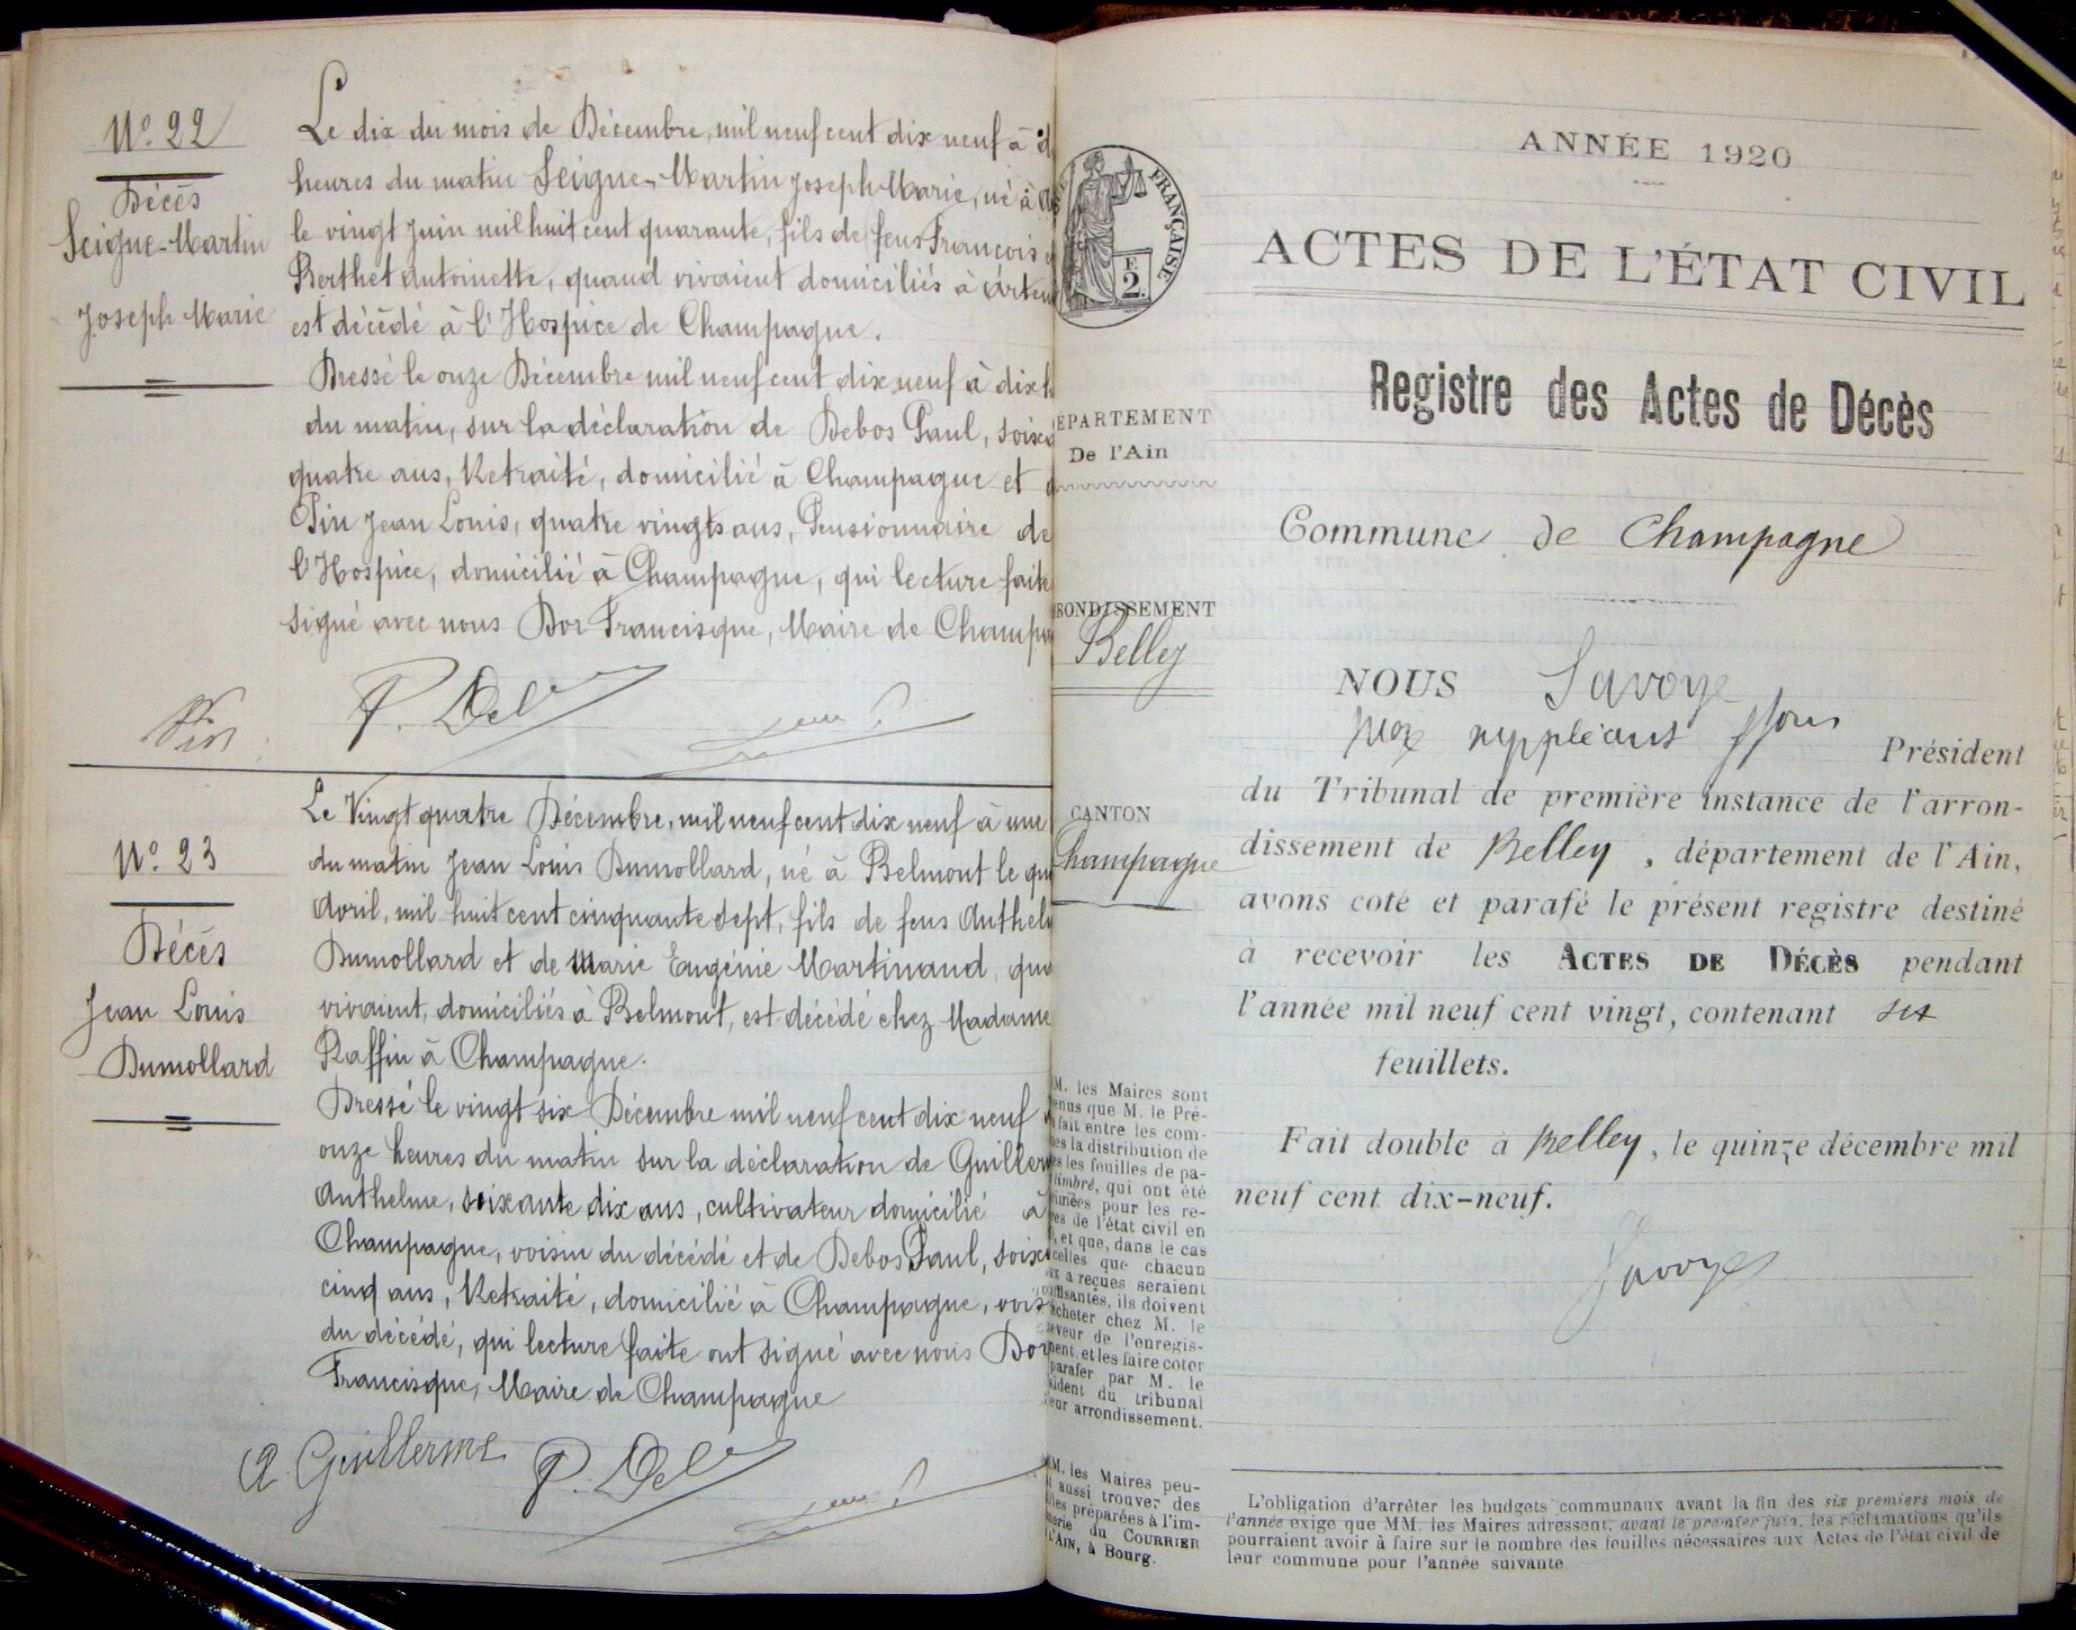 N° 22
Décès
Seigne-Martin
Joseph Marie
Le dix du mois de Décembre, mil neuf cent dix neuf à
heures du matin Seigne-Martin Joseph Marie, né à
le vingt Juin mil huit cent quarante, fils de feus François
Berthet Antoinette, quand vivaient domiciliés à Artem
est décédé à l'Hospice de Champagne.
Dressé le onze Décembre mil neuf cent dix neuf à dix h
du matin, sur la déclaration de Debos Paul, soixa
quatre ans, Retraité, domicilié à Champagne et
Pin Jean Louis, quatre vingts ans, Pensionnaire de
l'Hospice, domicilié à Champagne, qui lecture faite
signé avec nous Dor Francisque, Maire de Champa
Pin
P. Deb
N° 23
Décès
Jean Louis
Dumollard
Le Vingt quatre Décembre, mil neuf cent dix neuf à une
du matin Jean Louis Dumollard, né à Belmont le qu
Avril, mil huit cent cinquante sept, fils de feus Anthel
Dumollard et de Marie Eugénie Martinand, qua
vivaient, domiciliés à Belmont, est décédé chez Madame
Raffin à Champagne.
Dressé le vingt six Décembre mil neuf cent dix neuf
onze heures du matin sur la déclaration de Guiller
Anthelme, soixante dix ans, cultivateur domicilié à
Champagne, voisin du décédé et de Debos Paul, soixa
cinq ans, Retraité, domicilié à Champagne, vois
du décédé, qui lecture faite ont signé avec nous Dor
Francisque, Maire de Champagne
A. Guillerme P. Deb
FRANÇAISE
2
EPARTEMENT
De l'Ain
RONDISSEMENT
Belley
CANTON
Champagne
M. les Maires sont
enus que M. le Pré-
fait entre les com-
es la distribution de
es les feuilles de pa-
timbré, qui ont été
imées pour les re-
res de l'état civil en
, et que, dans le cas
celles que chacun
ux a reçues seraient
uffisantes, ils doivent
acheter chez M. le
eveur de l'enregis-
ment, et les faire coter
parafer par M. le
sident du tribunal
leur arrondissement.
MM. les Maires peu-
t aussi trouver des
lles préparées à l'im-
merie du COURRIER
l'AIN, à Bourg.
ANNÉE 1920
ACTES DE L'ÉTAT CIVIL
Registre des Actes de Décès
Commune de Champagne
NOUS Savoye
juge suppléant Président
du Tribunal de première instance de l'arron-
dissement de Belley, département de l'Ain,
avons coté et parafé le présent registre destiné
à recevoir les ACTES DE DÉCÈS pendant
l'année mil neuf cent vingt, contenant six
feuillets.
Fait double à Belley, le quinze décembre mil
neuf cent dix-neuf.
Savoye
L'obligation d'arrêter les budgets communaux avant la fin des six premiers mois de
l'année exige que MM. les Maires adressent, avant le premier juin, les réclamations qu'ils
pourraient avoir à faire sur le nombre des feuilles nécessaires aux Actes de l'état civil de
leur commune pour l'année suivante.